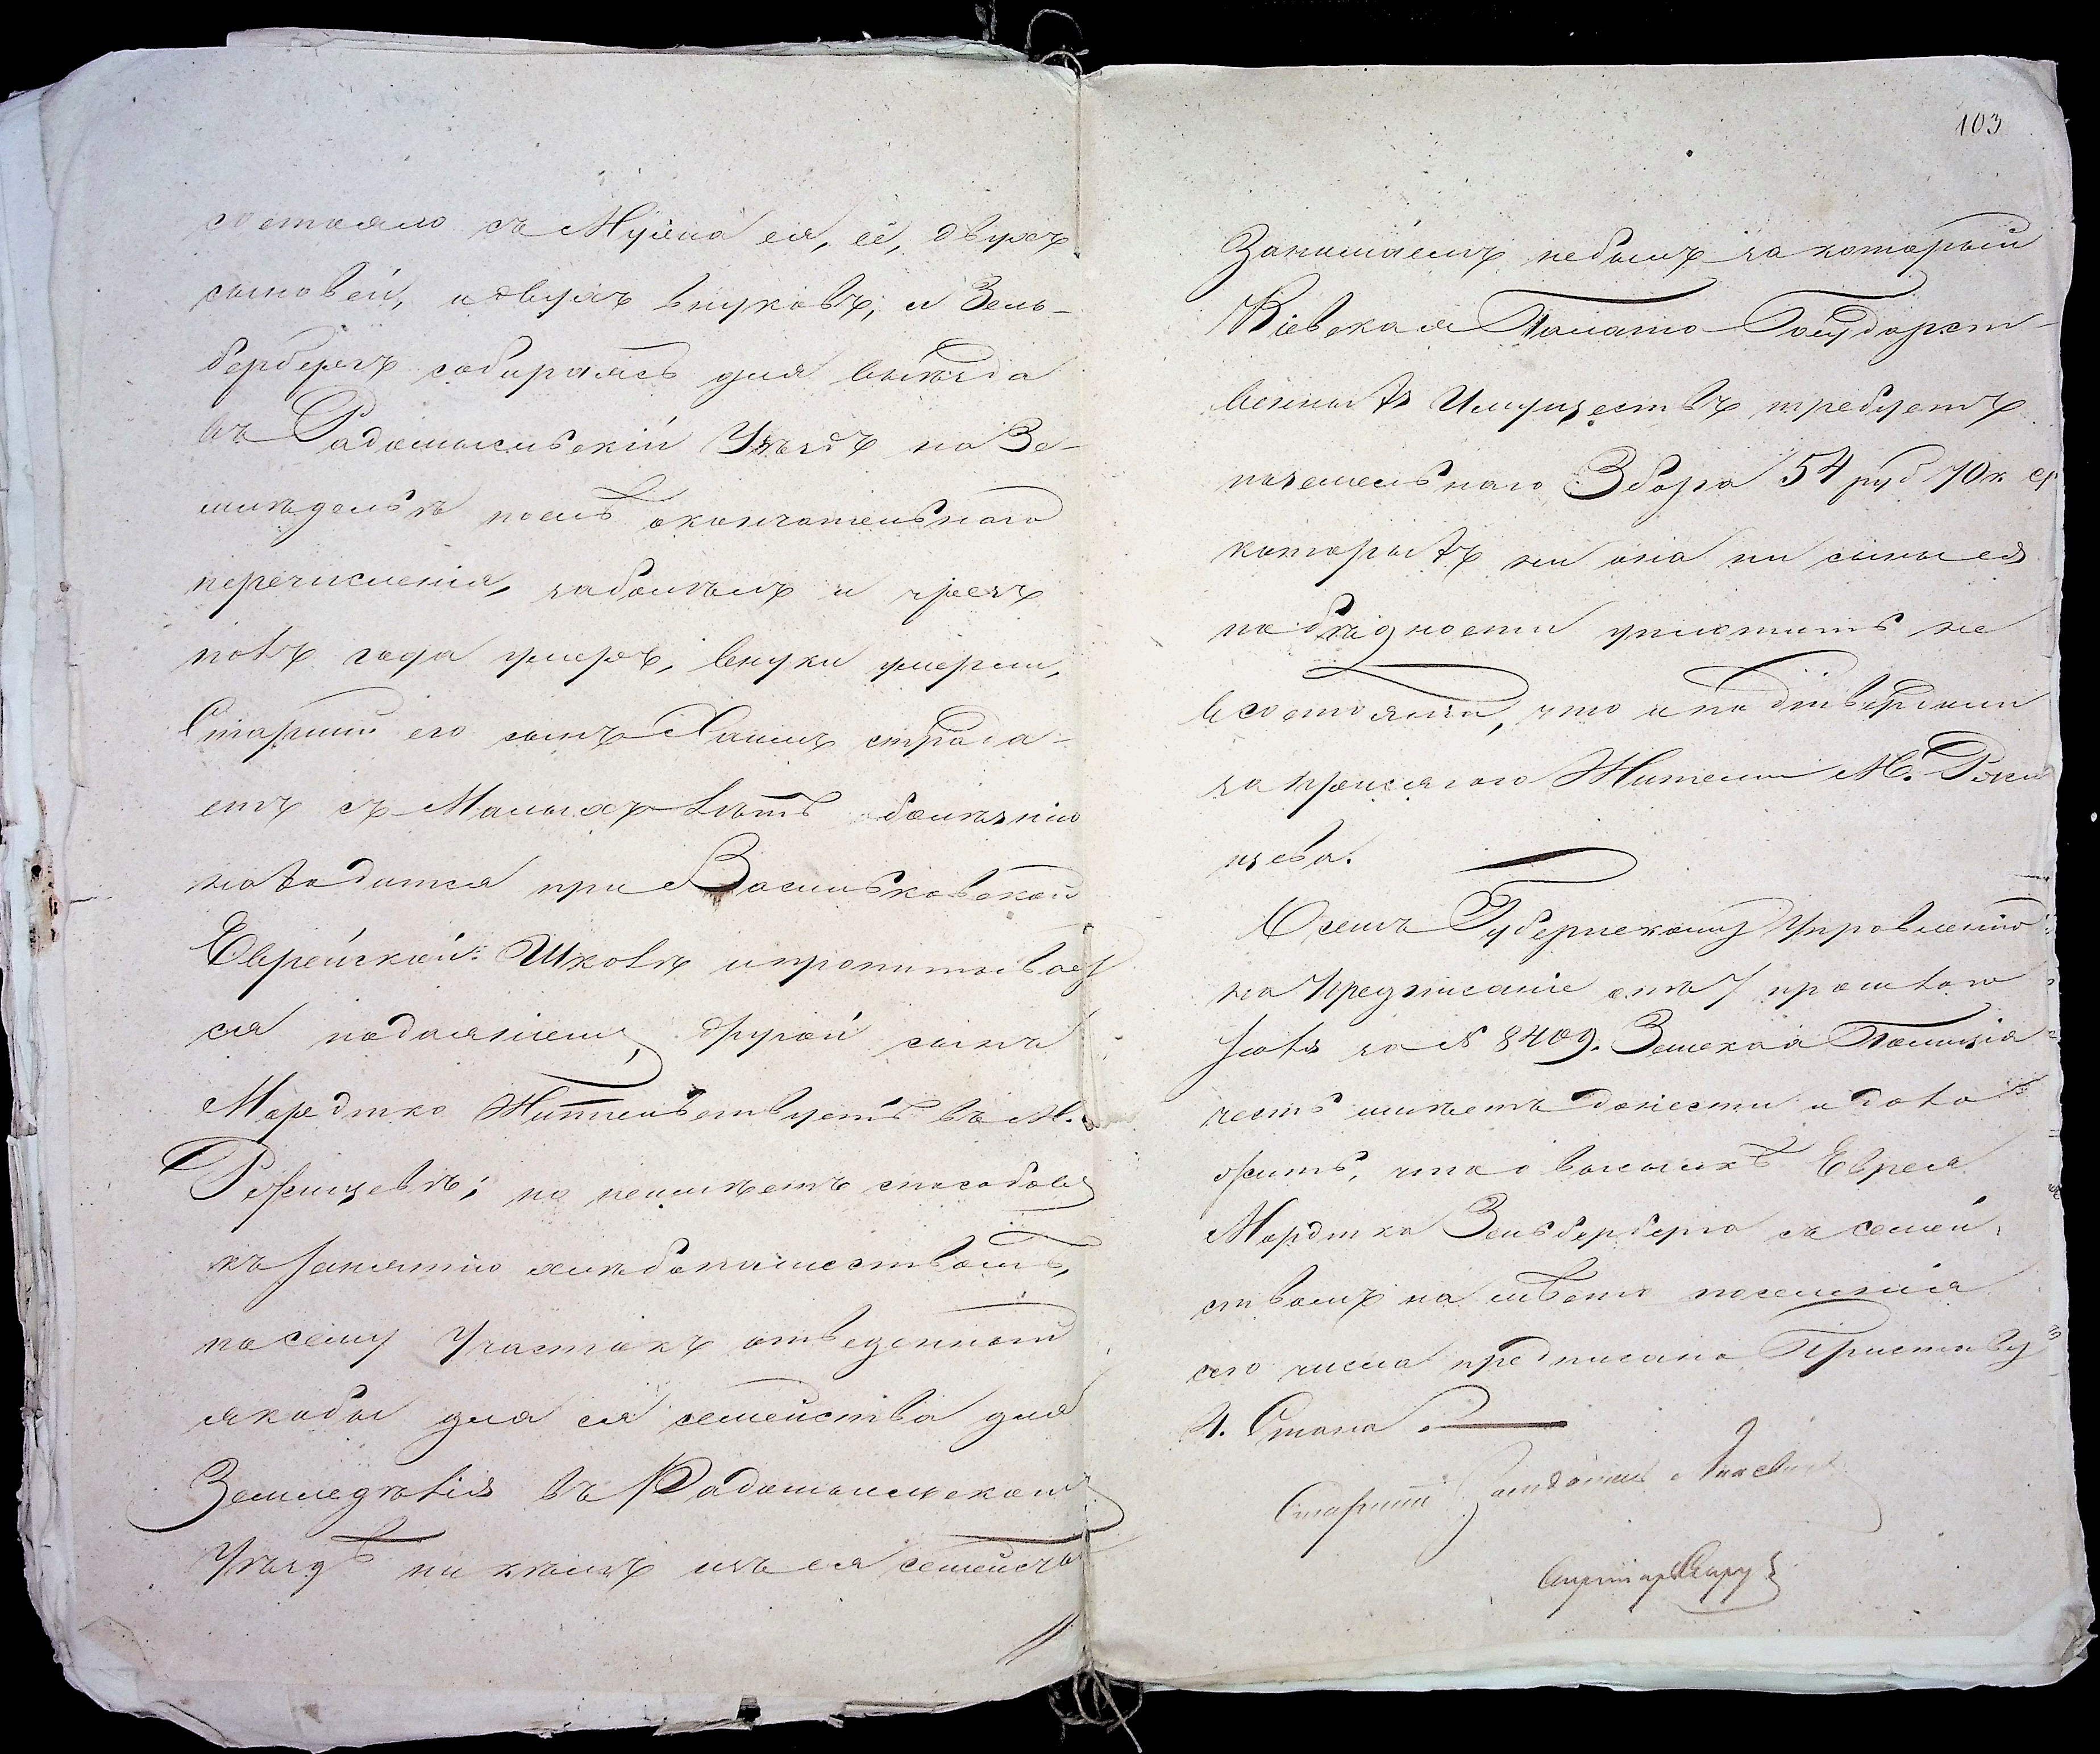 состояло съ Мужа ея, её, двухъ
сыновей, и двухъ внуковъ, и Зель-
бербергъ собираясь для выѣзда
въ Радомысльскій Уѣздъ на Зе-
мледельѣ послѣ окончательнаго
перечисленія, заболѣлъ и чрезъ
полъ года умеръ, внуки умерли,
Старшій его сынъ Хаимъ страда-
етъ съ Малыхъ Лѣтъ болѣзнію
находится при Васильковской
Еврейской Школѣ и пропитывает
ся подаяніемъ, другой сынъ
Мордтко Жительствуетъ въ М.
Ракитнѣ; но неимѣетъ способовъ
къ занятію хлѣбопашествомъ,
посему Участокъ отведенный
якобы для ея семейства для
Земледѣлія въ Радомысльскомъ
Уѣздѣ ни кѣмъ изъ ея семейства
103
Занимаемъ небылъ за который
Кіевская Палата Государст-
венныхъ Имуществъ требуетъ
поземельнаго Збора 54 руб 10 к ср
которыхъ ни она ни сыны ея
по бѣдности уплатить не
всостояніи, что и подтвердили
за присягою Жители М.

О чемъ Губернскому Управленію
на предписаніе отъ 7 прошлаго
Іюля за № 8409. Земская Полиція
честь имѣетъ донести и доло
жить, что о высылкѣ Еврея
Мордтка Зельберберга съ семей
ствомъ на мѣсто поселенія
сего числа предписано Приставу
4. Стана.
Старшій Засѣдатель
Секретарь